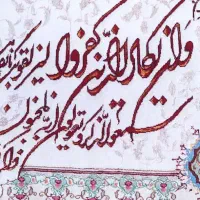 وان یکاد الذین کفروا لیزلقونک
سمعوا الذکر و یقولون انه لمجنون